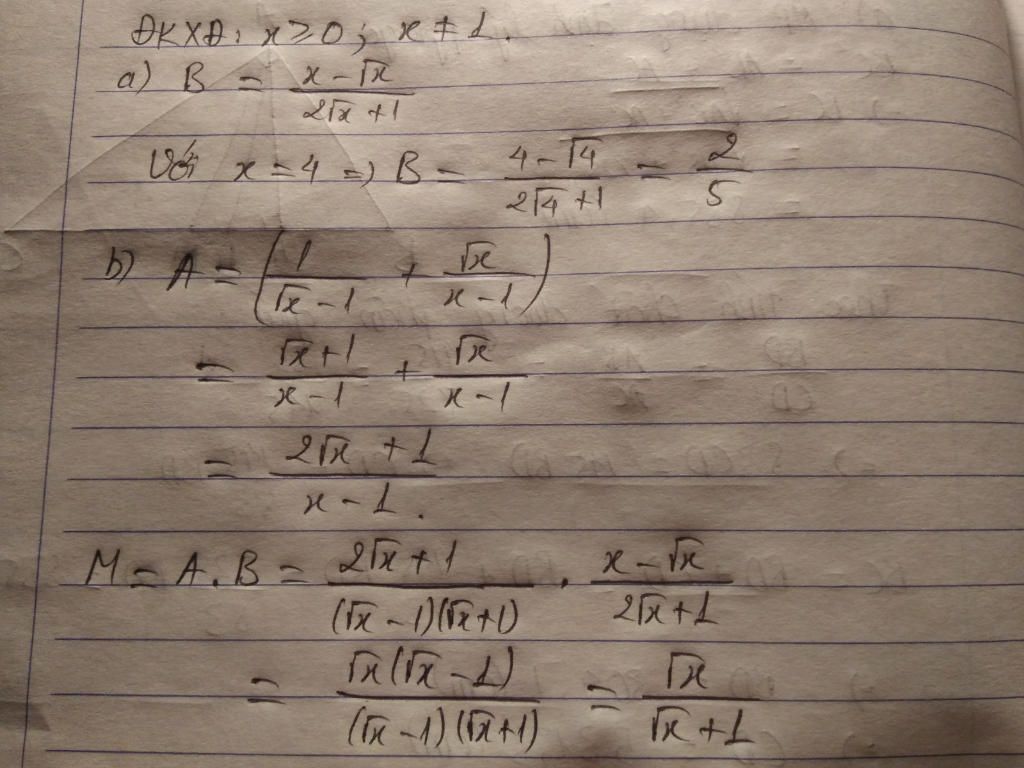 ĐKXĐ: x ≥ 0; x ≠ 1.
a) B = (x - √x)/(2√x + 1)
Với x = 4 => B = (4 - √4)/(2√4 + 1) = 2/5
b) A = (1/(√x - 1) + √x/(x - 1))
= (√x + 1)/(x - 1) + √x/(x - 1)
= (2√x + 1)/(x - 1).
M = A.B = (2√x + 1)/((√x - 1)(√x + 1)) . (x - √x)/(2√x + 1)
= (√x(√x - 1))/((√x - 1)(√x + 1)) = √x/(√x + 1)